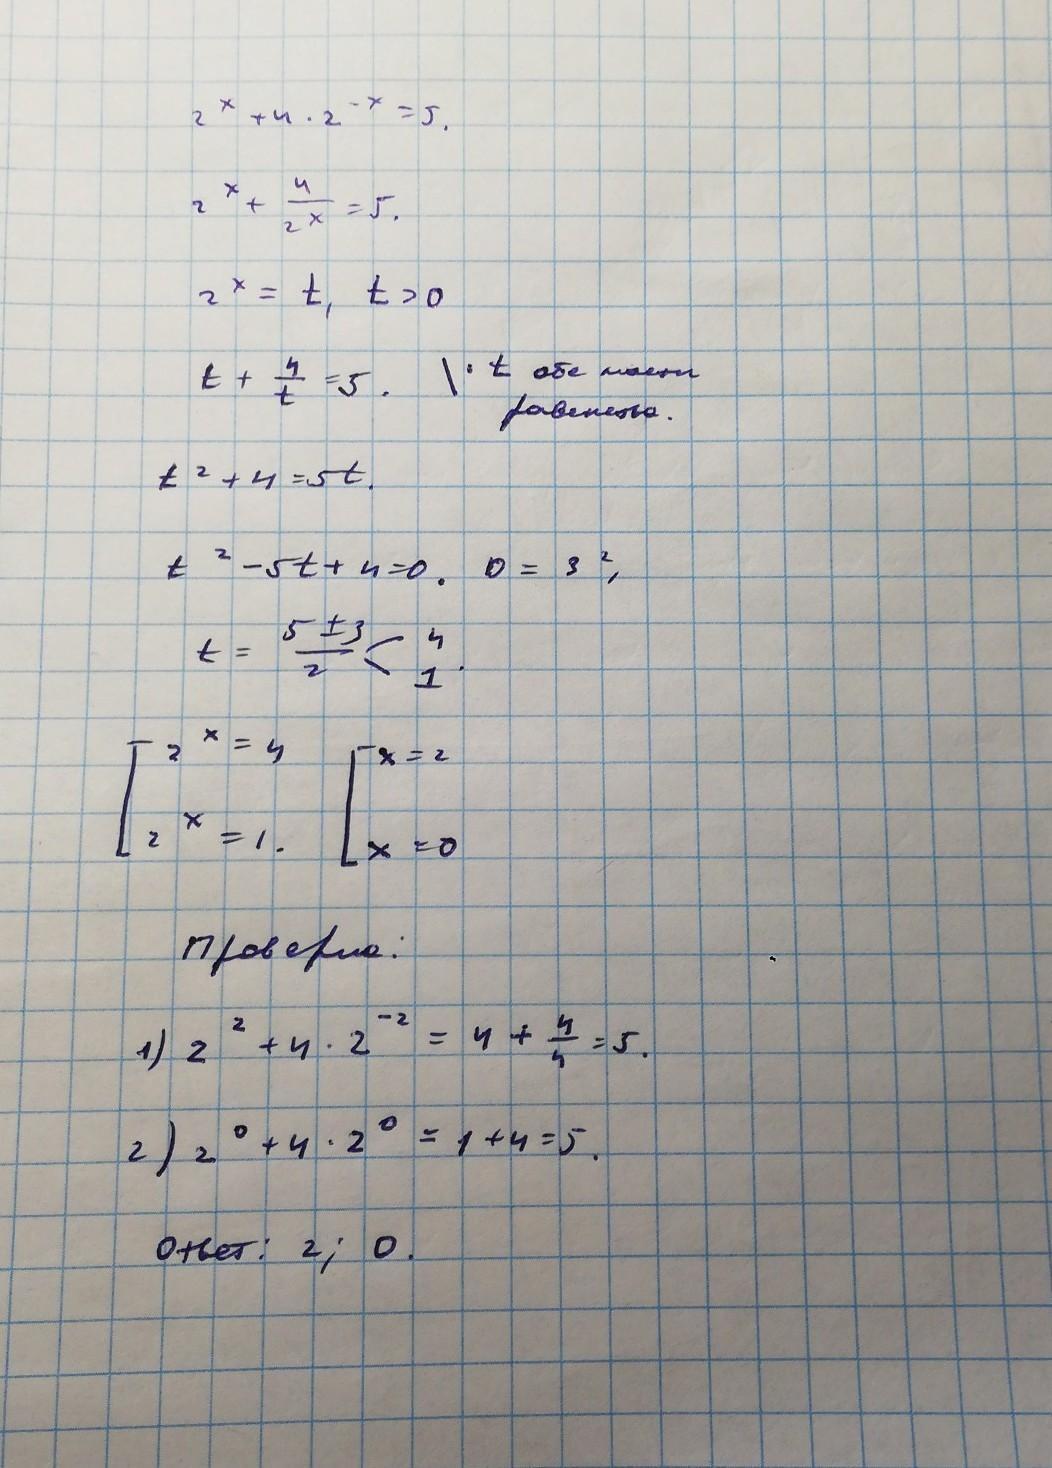 2^x + 4 · 2^{-x} = 5.
2^x + 4/2^x = 5.
2^x = t, t > 0
t + 4/t = 5. \ · t обе части
равенства.
t² + 4 = 5t.
t² - 5t + 4 = 0. D = 3²,
t = (5 ± 3)/2 < 4 1.
[ 2^x = 4 [ x = 2
2^x = 1. x = 0
Проверка:
1) 2² + 4 · 2^{-2} = 4 + 4/4 = 5.
2) 2⁰ + 4 · 2⁰ = 1 + 4 = 5.
Ответ: 2; 0.